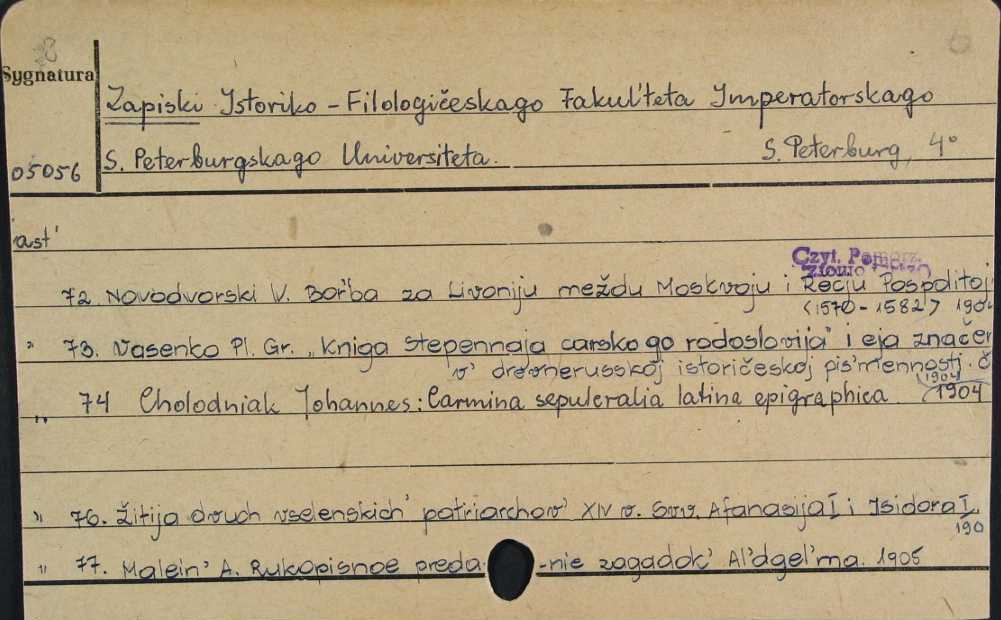 8
Sygnatura
Zapiski Istoriko - Filologičeskago Fakul'teta Imperatorskago
05056
S. Peterburgskago Universiteta. S. Peterburg, 4°
čast'
Czyt. Pomorz.
72. Novodvorski V. Bor'ba za Livoniju meždu Moskvoju i Rečju Pospolitoj
(1570 - 1582) 190
" 73. Vasenko Pl. Gr. „Kniga stepennaja carskogo rodoslovija" i eja značen
v' drevnerusskoj istoričeskoj pis'mennosti. č
(1904
" 74 Cholodniak Johannes: Carmina sepulcralia latina epigraphica. 1904
" 76. Žitija dvuch vselenskich' patriarchov' XIV v. Svv. Afanasija I i Isidora I.
190
" 77. Malein' A. Rukopisnoe preda -nie zagadok' Al'dgel'ma. 1905